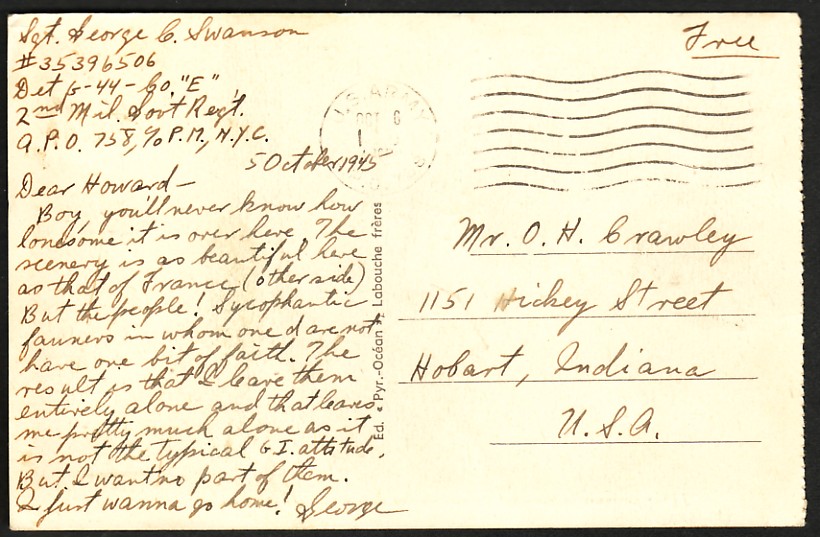 Sgt. George C. Swanson
#35396506
Det G-44-Co. "E"
2nd Mil. Govt Regt.
A.P.O. 758, % P.M., N.Y.C.
5 October 1945
Dear Howard—
Boy, you'll never know how
lonesome it is over here. The
scenery is as beautiful here
as that of France (other side)
But the people! Sycophantic
fawners in whom one dare not
have one bit of faith. The
result is that I leave them
entirely alone and that leaves
me pretty much alone as it
is not the typical G I. attitude.
But I want no part of them.
I just wanna go home! George
Ed. « Pyr.-Océan » Labouche frères
Free
U.S. ARMY
OCT 6
Mr. O. H. Crawley
1151 Hickey Street
Hobart, Indiana
U.S.A.